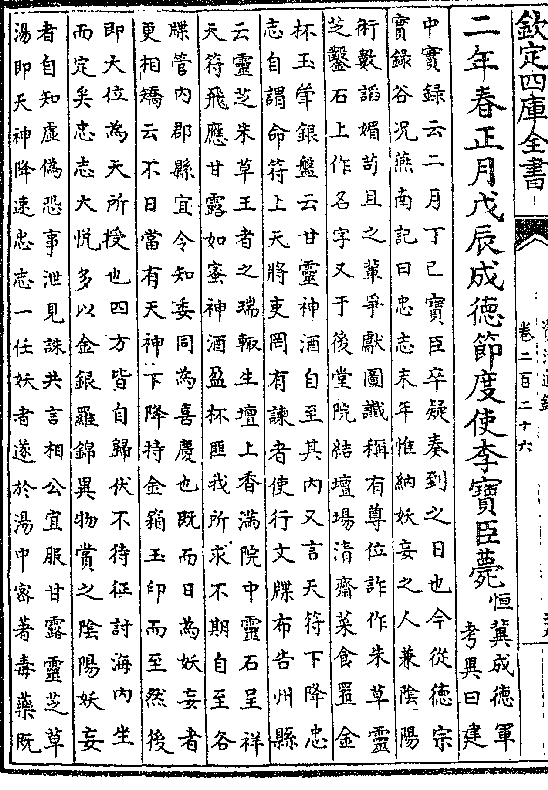 欽定四庫全書
卷二百二十六
二年春正月戊辰成德節度使李寶臣薨
恒冀成德軍
考異曰建
中實録云二月丁巳寶臣卒疑奏到之日也今從德宗
實録谷况燕南記曰忠志末年惟納妖妄之人兼陰陽
術數謟媚苟且之輩爭獻圖讖稱有尊位詐作朱草靈
芝鑿石上作名字又于後堂院結壇場清齋菜食置金
杯玉斚銀盤云甘靈神酒自至其内又言天符下降忠
志自謂命符上天將吏罔有諫者使行文牒布告州縣
云靈芝朱草王者之瑞輙生壇上香滿院中靈石呈祥
天符飛應甘露如蜜神酒盈杯匪我所求不期自至各
牒管内郡縣宜令知委同為喜慶也既而日為妖妄者
更相矯云不日當有天神下降持金箱玉印而至然後
即天位為天所授也四方皆自歸伏不待征討海内坐
而定矣忠志大悦多以金銀羅錦異物賞之陰陽妖妄
者自知虛偽恐事泄見誅共言相公宜服甘露靈芝草
湯即天神降速忠志一任妖者遂於湯中密著毒藥既